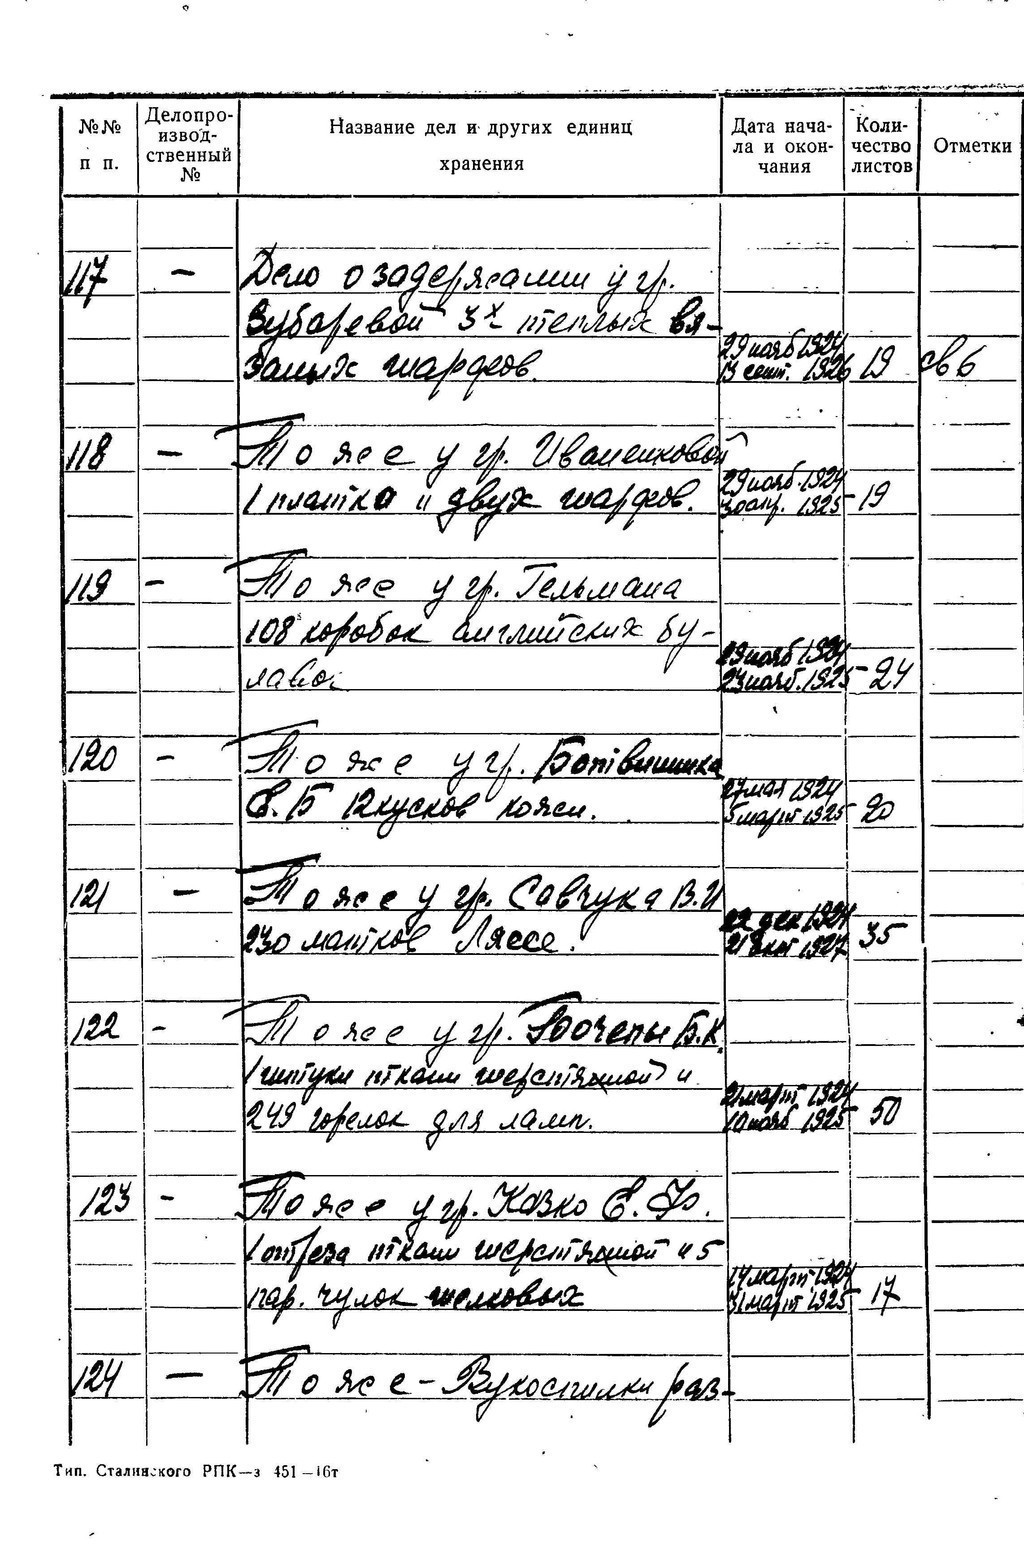 №№ п п.
Делопро-
извод-
ственный
№
Название дел и других единиц
хранения
Дата нача-
ла и окон-
чания
Коли-
чество
листов
Отметки
117 — Дело о задержании у гр.
Зубаревой 3х теплых вя-
заных шарфов.
29 нояб 1924
13 сент. 1926 19 св 6
118 — То же у гр. Иваненковой
1 платка и двух шарфов.
29 нояб. 1924
30 апр. 1925 19
119 — То же у гр. Гельмана
108 коробок английских бу-
лавок
29 нояб 1924
23 нояб. 1925 24
120 — То же у гр. Ботвинника
Е. Б 12 кусков кожи.
27 мая 1924
5 март 1925 20
121 — То же у гр. Савчука В. И
230 мотков Ляссе.
22 дек 1924
21 окт 1927 35
122 — То же у гр. Б. К.
1 штуки ткани шерстяной и
249 горелок для ламп.
21 март 1924
10 нояб 1925 50
123 — То же у гр. Казко Е. Ф.
1 отреза ткани шерстяной и 5
пар. чулок шелковых
14 март 1924
31 март 1925 17
124 — То же – Вукоспилки раз-
Тип. Сталинского РПК—з 451—16т